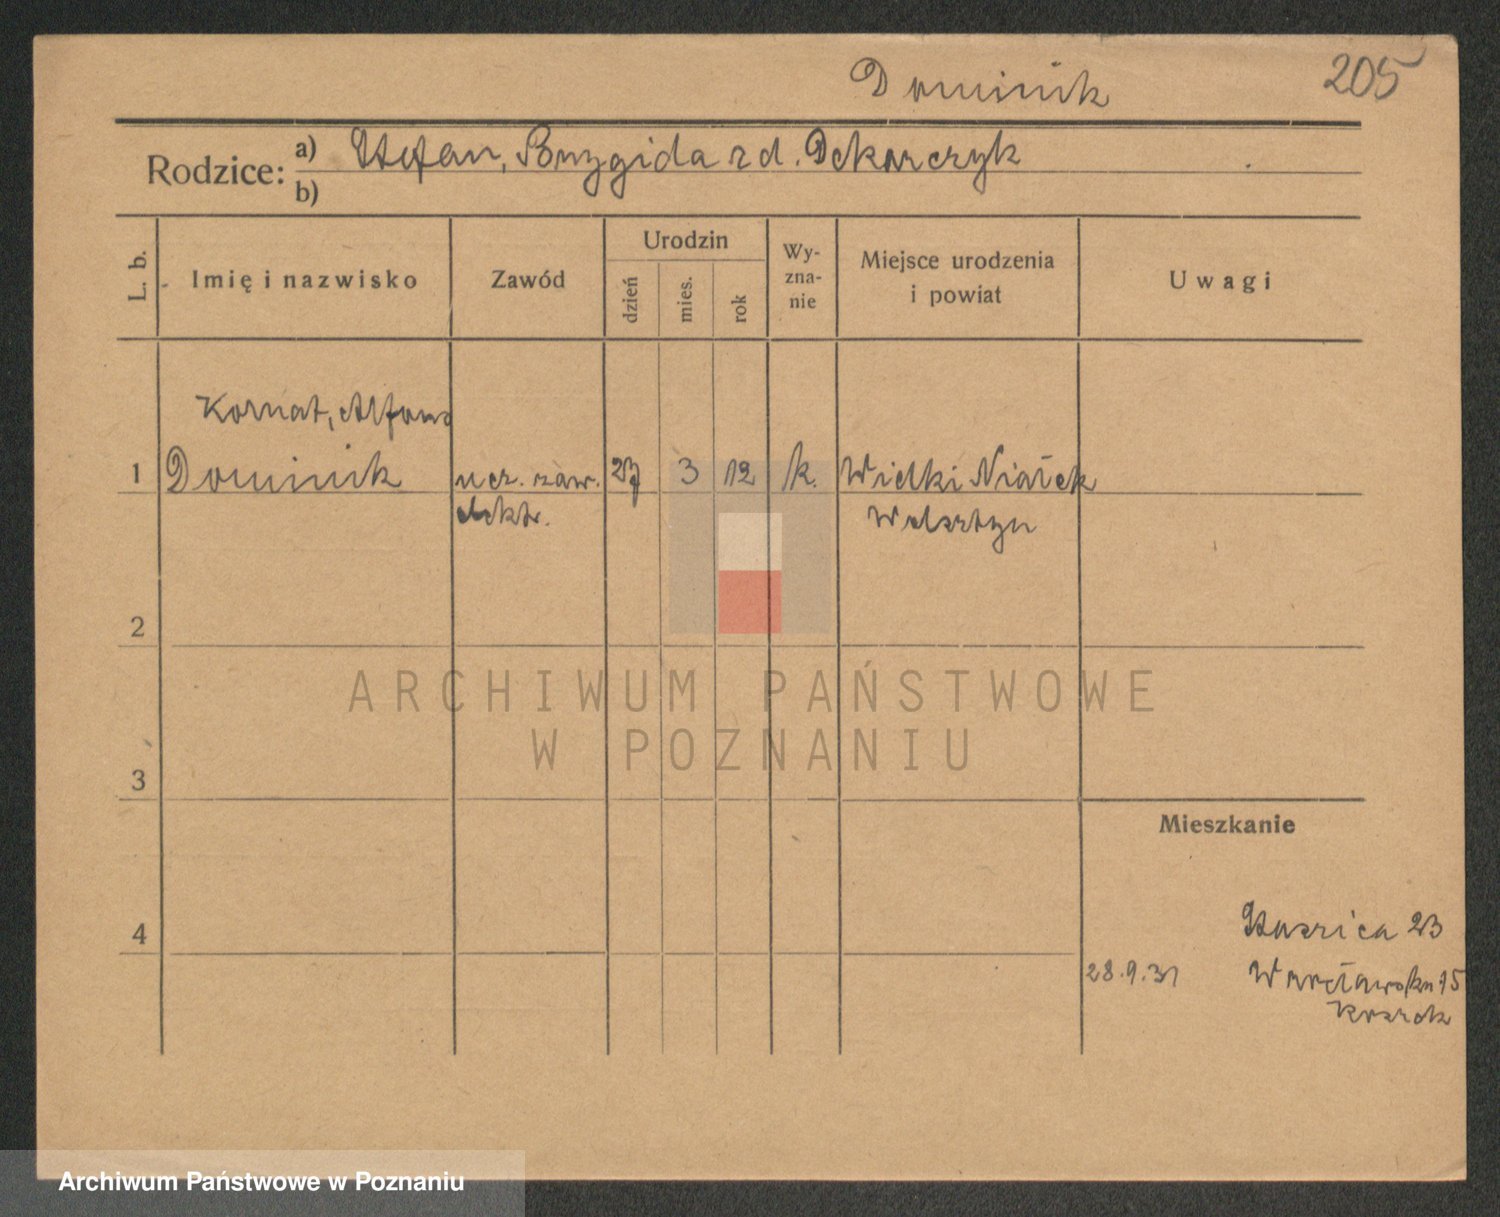 Dominik 205
Rodzice: a) Stefan, Brygida z d. Dekarczyk
b)
L. b. Imię i nazwisko Zawód Urodzin dzień mies. rok Wyznanie Miejsce urodzenia i powiat Uwagi
Kornat, Alfons
1 Dominik ucz. zaw. 27 3 12 k. Wielki Niałek
elektr. Wolsztyn
2
3
Mieszkanie
4 Staszica 23
28.9.31 Wrocławska 15
ARCHIWUM PAŃSTWOWE
W POZNANIU
Archiwum Państwowe w Poznaniu